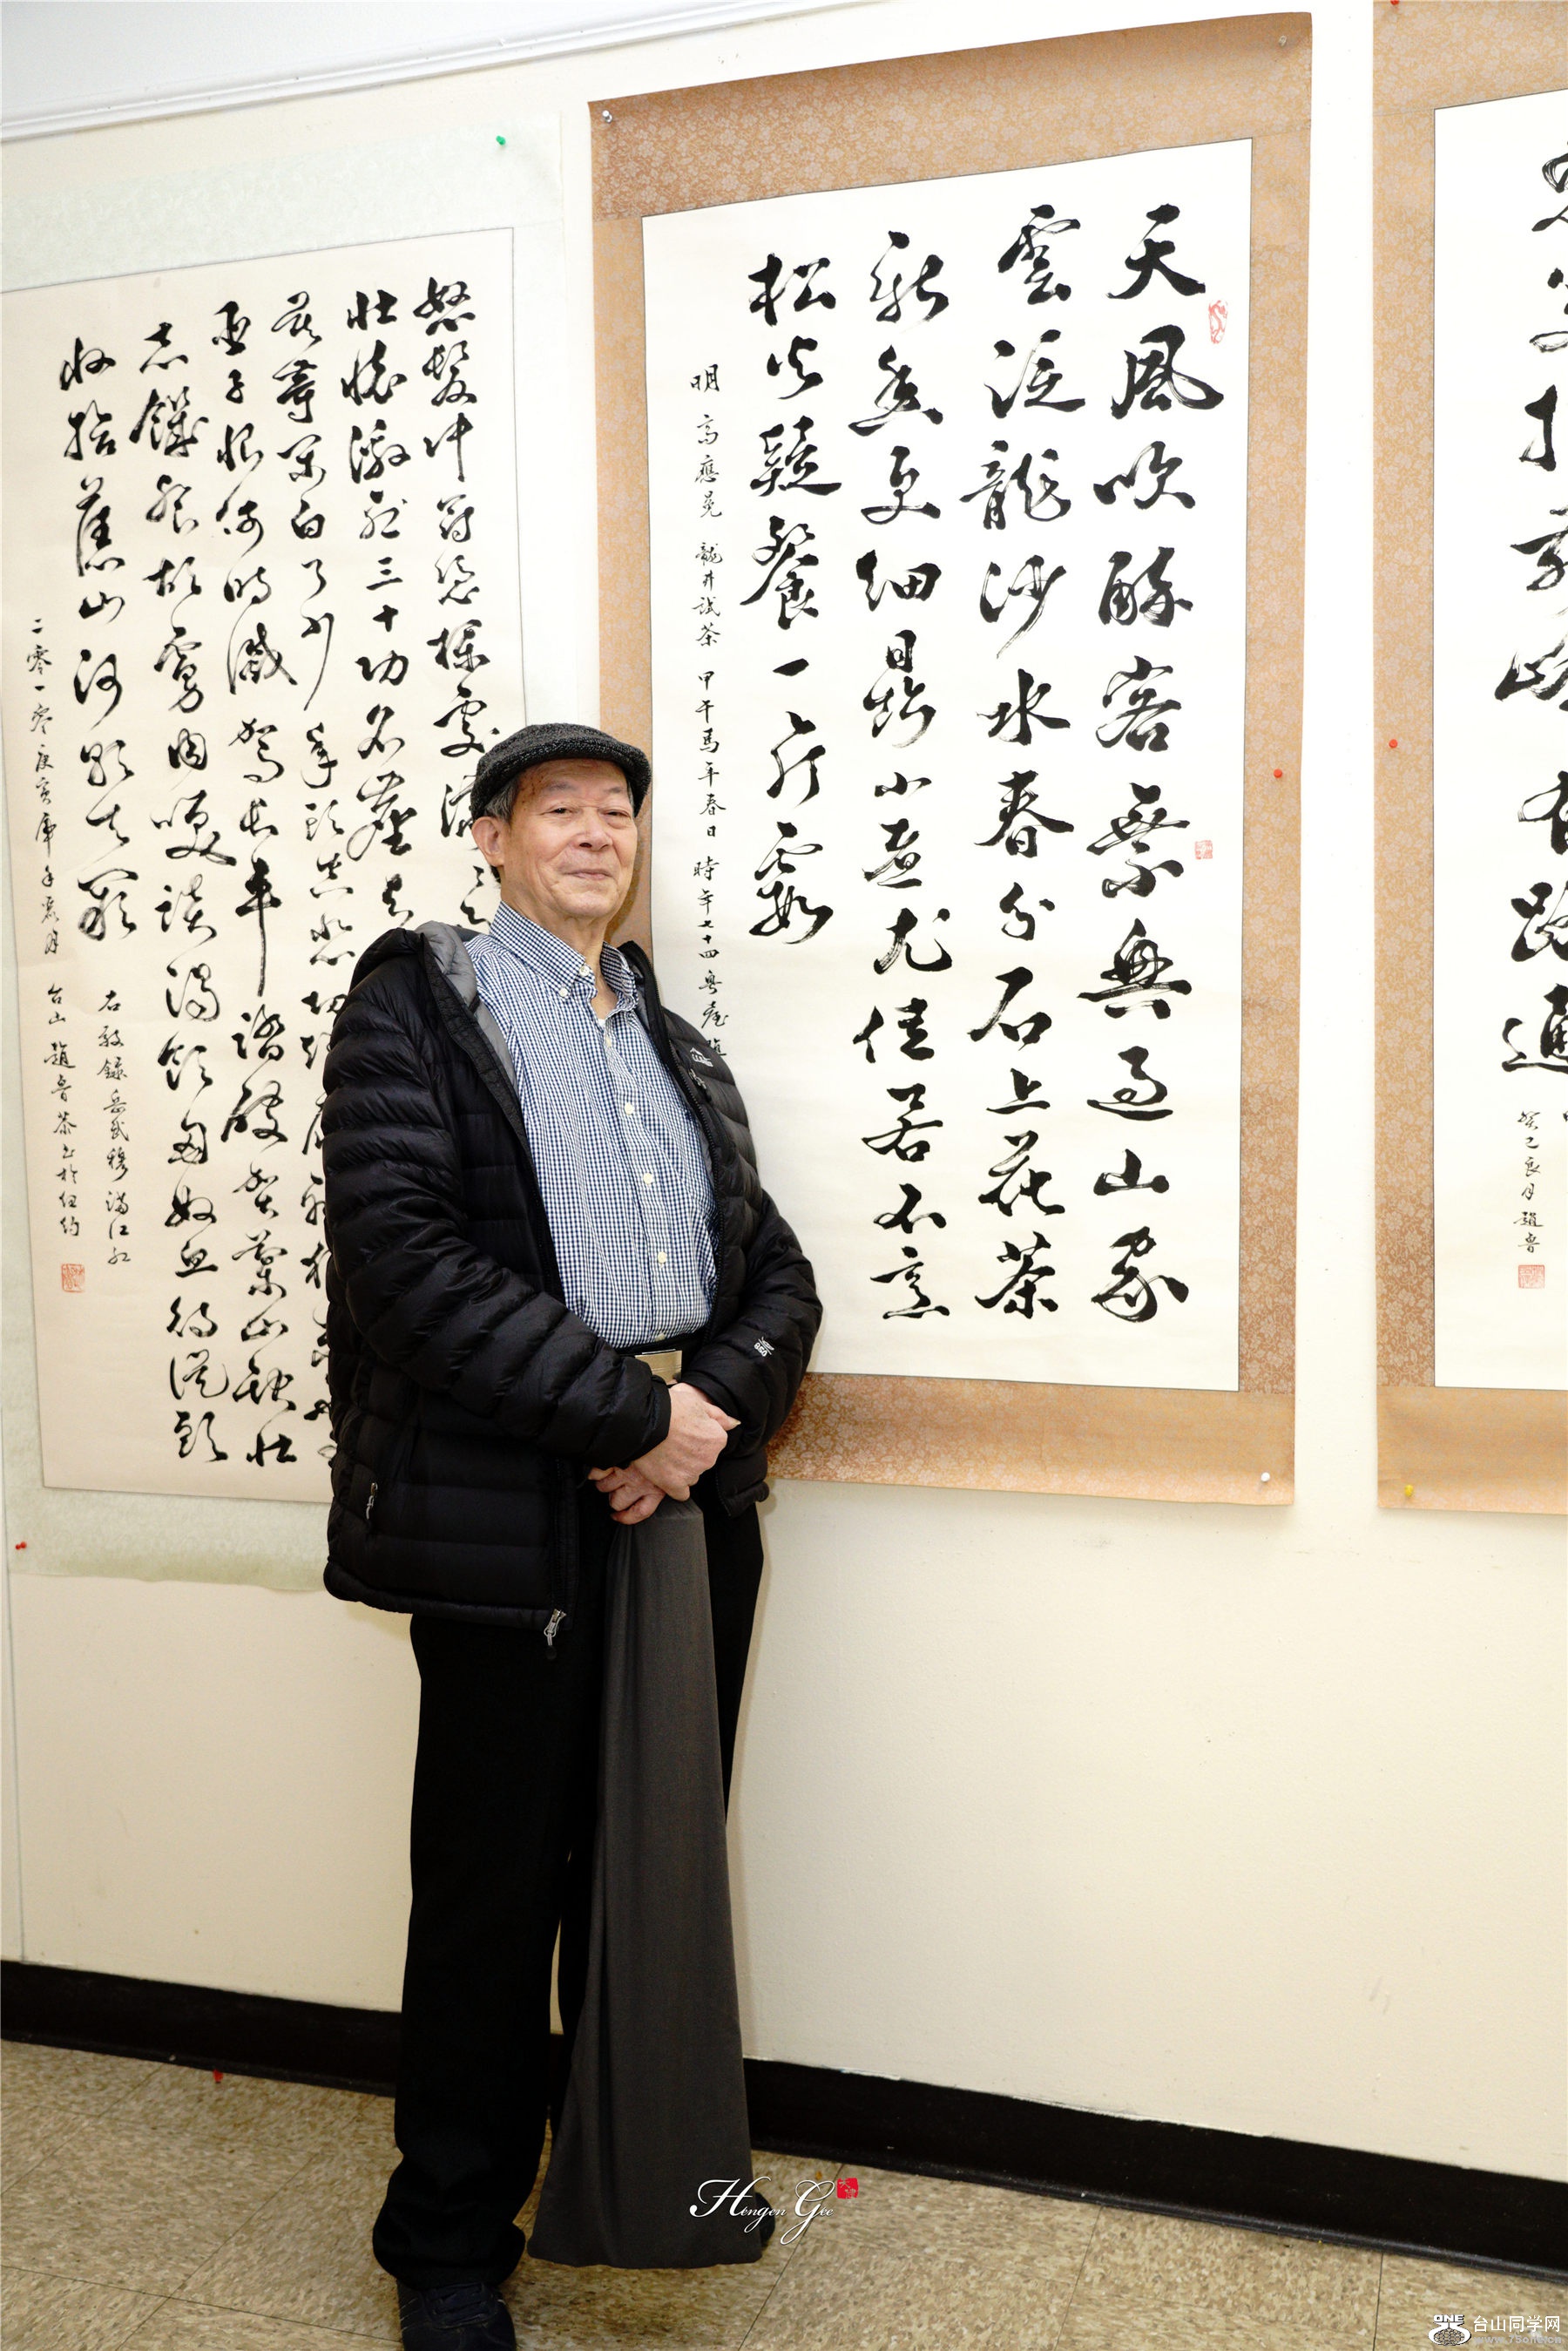 有路通
癸巳良月 趙魯
天風吹醉客乘興過山家
雲泛龍沙水春分石上花茶
新香更細鼎小煮尤佳若不烹
松火疑餐一片霞
明 高應冕 龍井試茶 甲午馬年春日 時年七十四粵臺趙
怒髮冲冠憑欄處瀟
壯懷激烈三十功名塵
莫等閒白了少年頭空悲切
臣子恨何時滅駕長車踏破賀蘭山缺壯
志饑餐胡虜肉笑談渴飲匈奴血待從頭
收拾舊山河朝天闕
右敬錄岳武穆滿江紅
二零一零庚寅虎年 月 台山趙魯恭書於纽約
Hengen Gee
ONE 台山同学网